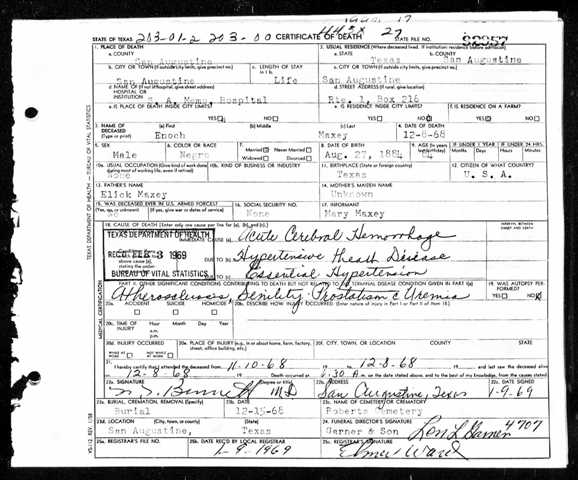 203-01-2 203-00
STATE OF TEXAS CERTIFICATE OF DEATH STATE FILE NO.
27
1. PLACE OF DEATH
a. COUNTY
San Augustine
2. USUAL RESIDENCE (Where deceased lived. If institution: residence before admission)
a. STATE
Texas
b. COUNTY
San Augustine
b. CITY OR TOWN (If outside city limits, give precinct no.)
San Augustine
c. LENGTH OF STAY in 1 b.
Life
c. CITY OR TOWN (If outside city limits, give precinct no.)
San Augustine
d. NAME OF (If not in hospital, give street address)
HOSPITAL OR
INSTITUTION
S. A. Meml. Hospital
d. STREET ADDRESS (If rural, give location)
Rte. 1, Box 216
e. IS PLACE OF DEATH INSIDE CITY LIMITS?
YES NO
e. IS RESIDENCE INSIDE CITY LIMITS?
YES NO
f. IS RESIDENCE ON A FARM?
YES NO
3. NAME OF DECEASED (Type or print)
(a) First
Enoch
(b) Middle
(c) Last
Maxey
4. DATE OF DEATH
12-8-68
5. SEX
Male
6. COLOR OR RACE
Negro
7. Married Never Married
Widowed Divorced
8. DATE OF BIRTH
Aug. 27, 1884
9. AGE
84
IF UNDER 1 YEAR
Months Days
IF UNDER 24 HRS.
Hours Min.
10a. USUAL OCCUPATION (Give kind of work done
None
10b. KIND OF BUSINESS OR INDUSTRY
11. BIRTHPLACE (State or foreign country)
Texas
12. CITIZEN OF WHAT COUNTRY?
U. S. A.
13. FATHER'S NAME
Elick Maxey
14. MOTHER'S MAIDEN NAME
Unknown
15. WAS DECEASED EVER IN U.S. ARMED FORCES?
(Yes, no, or unknown) (If yes, give war or dates of service)
No
16. SOCIAL SECURITY NO.
None
17. INFORMANT
Mary Maxey
18. CAUSE OF DEATH (Enter only one cause per line for (a), (b), and (c).)
INTERVAL BETWEEN ONSET AND DEATH
IMMEDIATE CAUSE (a) Acute Cerebral Hemorrhage
DUE TO (b) Hypertensive Heart Disease
DUE TO (c) Essential Hypertension
TEXAS DEPARTMENT OF HEALTH
REC'D FEB 3 1969
BUREAU OF VITAL STATISTICS
PART II. OTHER SIGNIFICANT CONDITIONS CONTRIBUTING TO DEATH BUT NOT RELATED TO THE TERMINAL DISEASE CONDITION GIVEN IN PART I(a)
Atherosclerosis, Senility, Prostatism c Uremia
19. WAS AUTOPSY PERFORMED?
YES NO
20a. ACCIDENT SUICIDE HOMICIDE
20b. DESCRIBE HOW INJURY OCCURRED (Enter nature of injury in Part I or Part II of item 18)
20c. TIME OF INJURY Hour Month Day Year
20d. INJURY OCCURRED
WHILE AT WORK NOT WHILE AT WORK
20e. PLACE OF INJURY (e.g., in or about home, farm, factory, street, office building, etc.)
20f. CITY, TOWN, OR LOCATION COUNTY STATE
21. I hereby certify that I attended the deceased from 11-10-68 to 12-8-68 and last saw the deceased alive
on 12-8-68 Death occurred at 6:30 A m. on the date stated above, and to the best of my knowledge, from the causes stated.
22a. SIGNATURE (Degree or title)
Bennett MD
22b. ADDRESS
San Augustine, Texas
22c. DATE SIGNED
1-9-69
23a. BURIAL, CREMATION, REMOVAL (Specify)
Burial
23b. DATE
12-15-68
23c. NAME OF CEMETERY OR CREMATORY
Roberts Cemetery
23d. LOCATION (City, town, or county) (State)
San Augustine, Texas
24. FUNERAL DIRECTOR'S SIGNATURE
Garner & Son
4707
25a. REGISTRAR'S FILE NO.
25b. DATE REC'D BY LOCAL REGISTRAR
1-9-1969
25c. REGISTRAR'S SIGNATURE
Elmer Ward
TEXAS DEPARTMENT OF HEALTH — BUREAU OF VITAL STATISTICS
MEDICAL CERTIFICATION